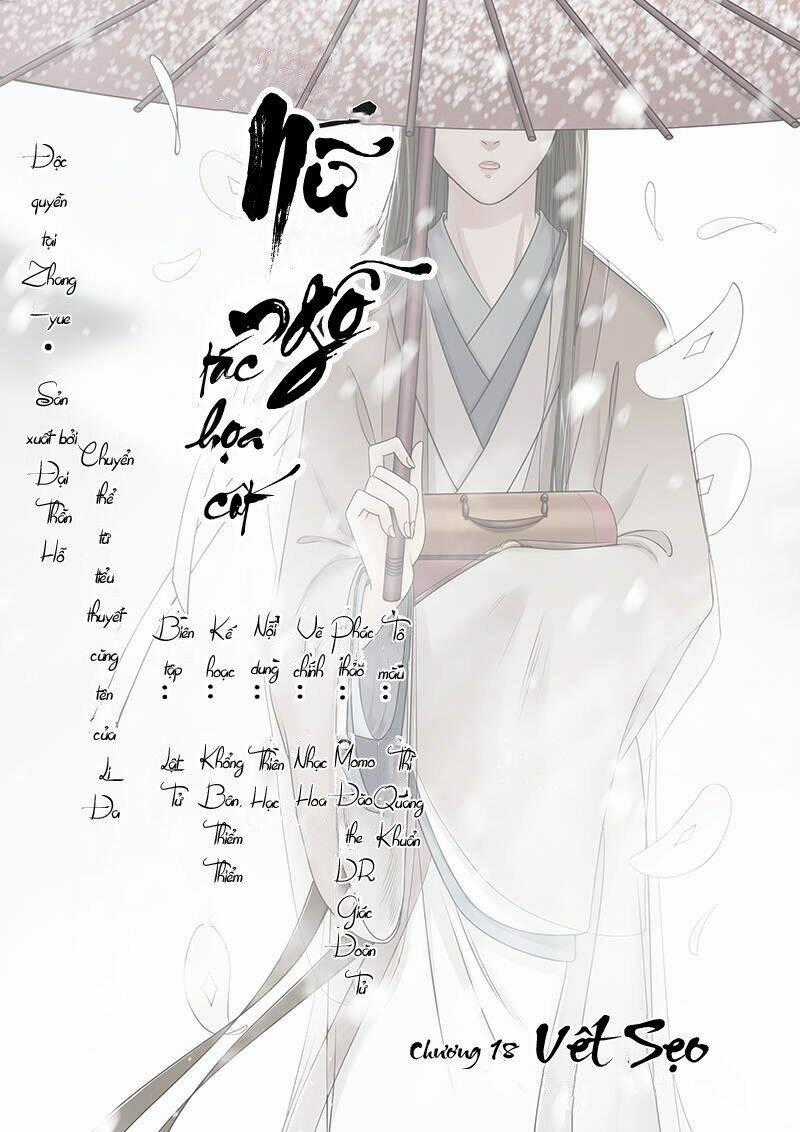 Nữ
ngỗ
tác
họa
cốt
Độc quyền tại Zhang-yue • Sản xuất bởi Đại Thần Hỗ
Chuyển thể từ tiểu thuyết cùng tên của Li Đa
Biên tập : Lật Tử
Kế hoạc : Khổng Bân, Thiểm Thiểm
Nội dung : Thiền Hạc
Vẽ chính : Nhạc Hoa
Phác thảo : Momo Đào the DR Giác Đoàn Tử
Tô màu : Thì Quảng Khuẩn
Chương 18 Vết Sẹo